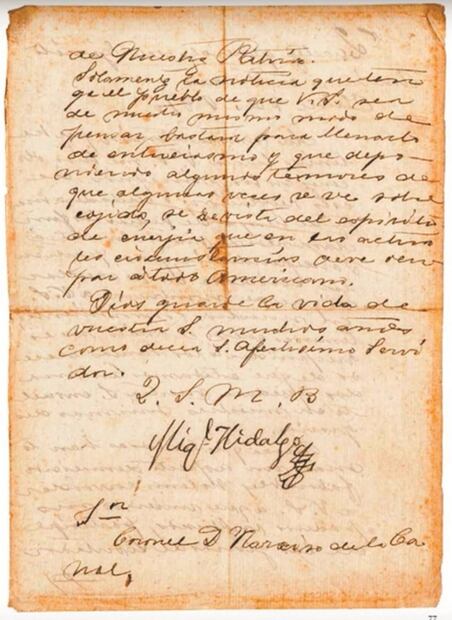 de Nuestra Patria.
Solamente la noticia que ten
ga el pueblo de que V.S. sea
de nuestro mismo modo de
pensar bastará para llenarlo
de entusiasmo y que depo-
niendo algunos temores de
que algunas veces se ve sobre
cojido, se revista del espíritu
de energía que en las actua
les circunstancias debe
Americano.
Dios guarde la vida de
vuestra S. muchos años
como decea S. Afectisimo Servi
dor.
Q. S. M. B
Mig.l Hidalgo
Sor
Coronel D Narciso de la Ca
nal,
77